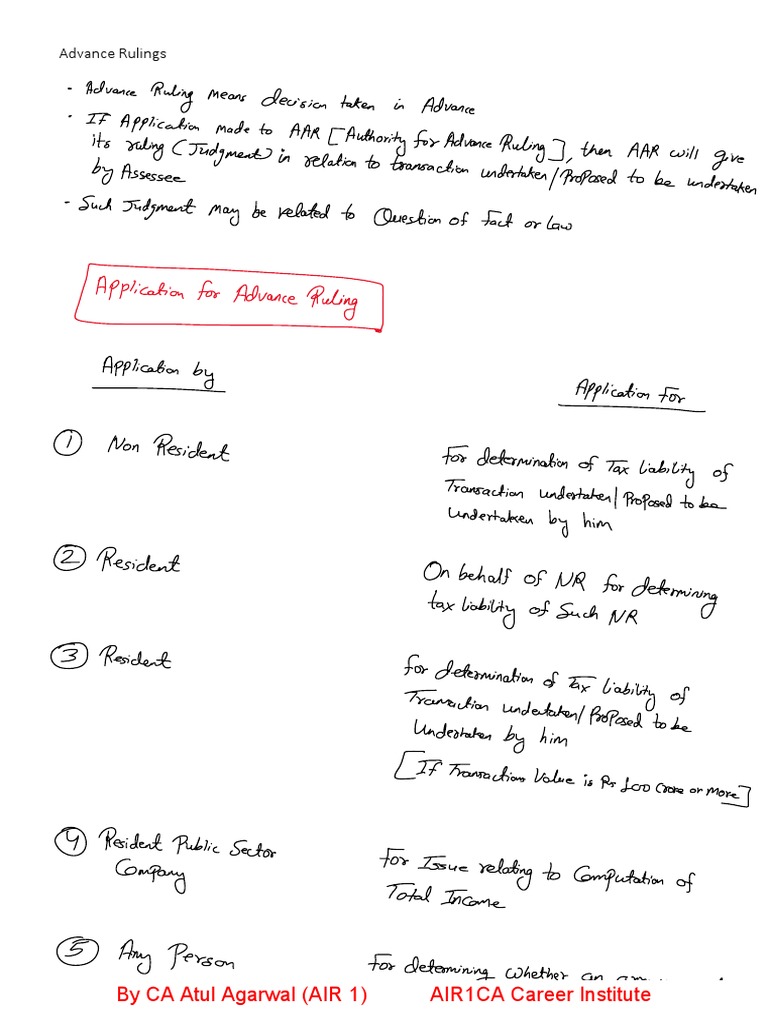 Advance Rulings
- Advance Ruling means decision taken in Advance
- If Application made to AAR [Authority for Advance Ruling], then AAR will give
its ruling (Judgment) in relation to transaction undertaken/Proposed to be undertaken
by Assessee
- Such Judgment may be related to Question of Fact or Law
Application for Advance Ruling
Application by
Application For
① Non Resident
For determination of Tax liability of
Transaction undertaken/Proposed to be
Undertaken by him
② Resident
On behalf of NR for determining
tax liability of Such NR
③ Resident
For determination of Tax liability of
Transaction undertaken/Proposed to be
Undertaken by him
[If Transaction Value is Rs 100 Crore or more]
④ Resident Public Sector
Company
For Issue relating to Computation of
Total Income
⑤ Any Person
For determining whether an
By CA Atul Agarwal (AIR 1) AIR1CA Career Institute